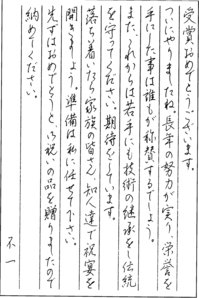 受賞おめでとうございます。
ついにやりましたね。長年の努力が実り、栄誉を
手にした事は誰もが称賛するでしょう。
また、これからは若手にも技術の継承をし伝統
を守ってください。期待をしています。
落ち着いたら家族の皆さん、知人達で祝宴を
開きましょう。準備は私に任せて下さい。
先ずはおめでとうとお祝いの品を贈りましたので
納めてください。
不一